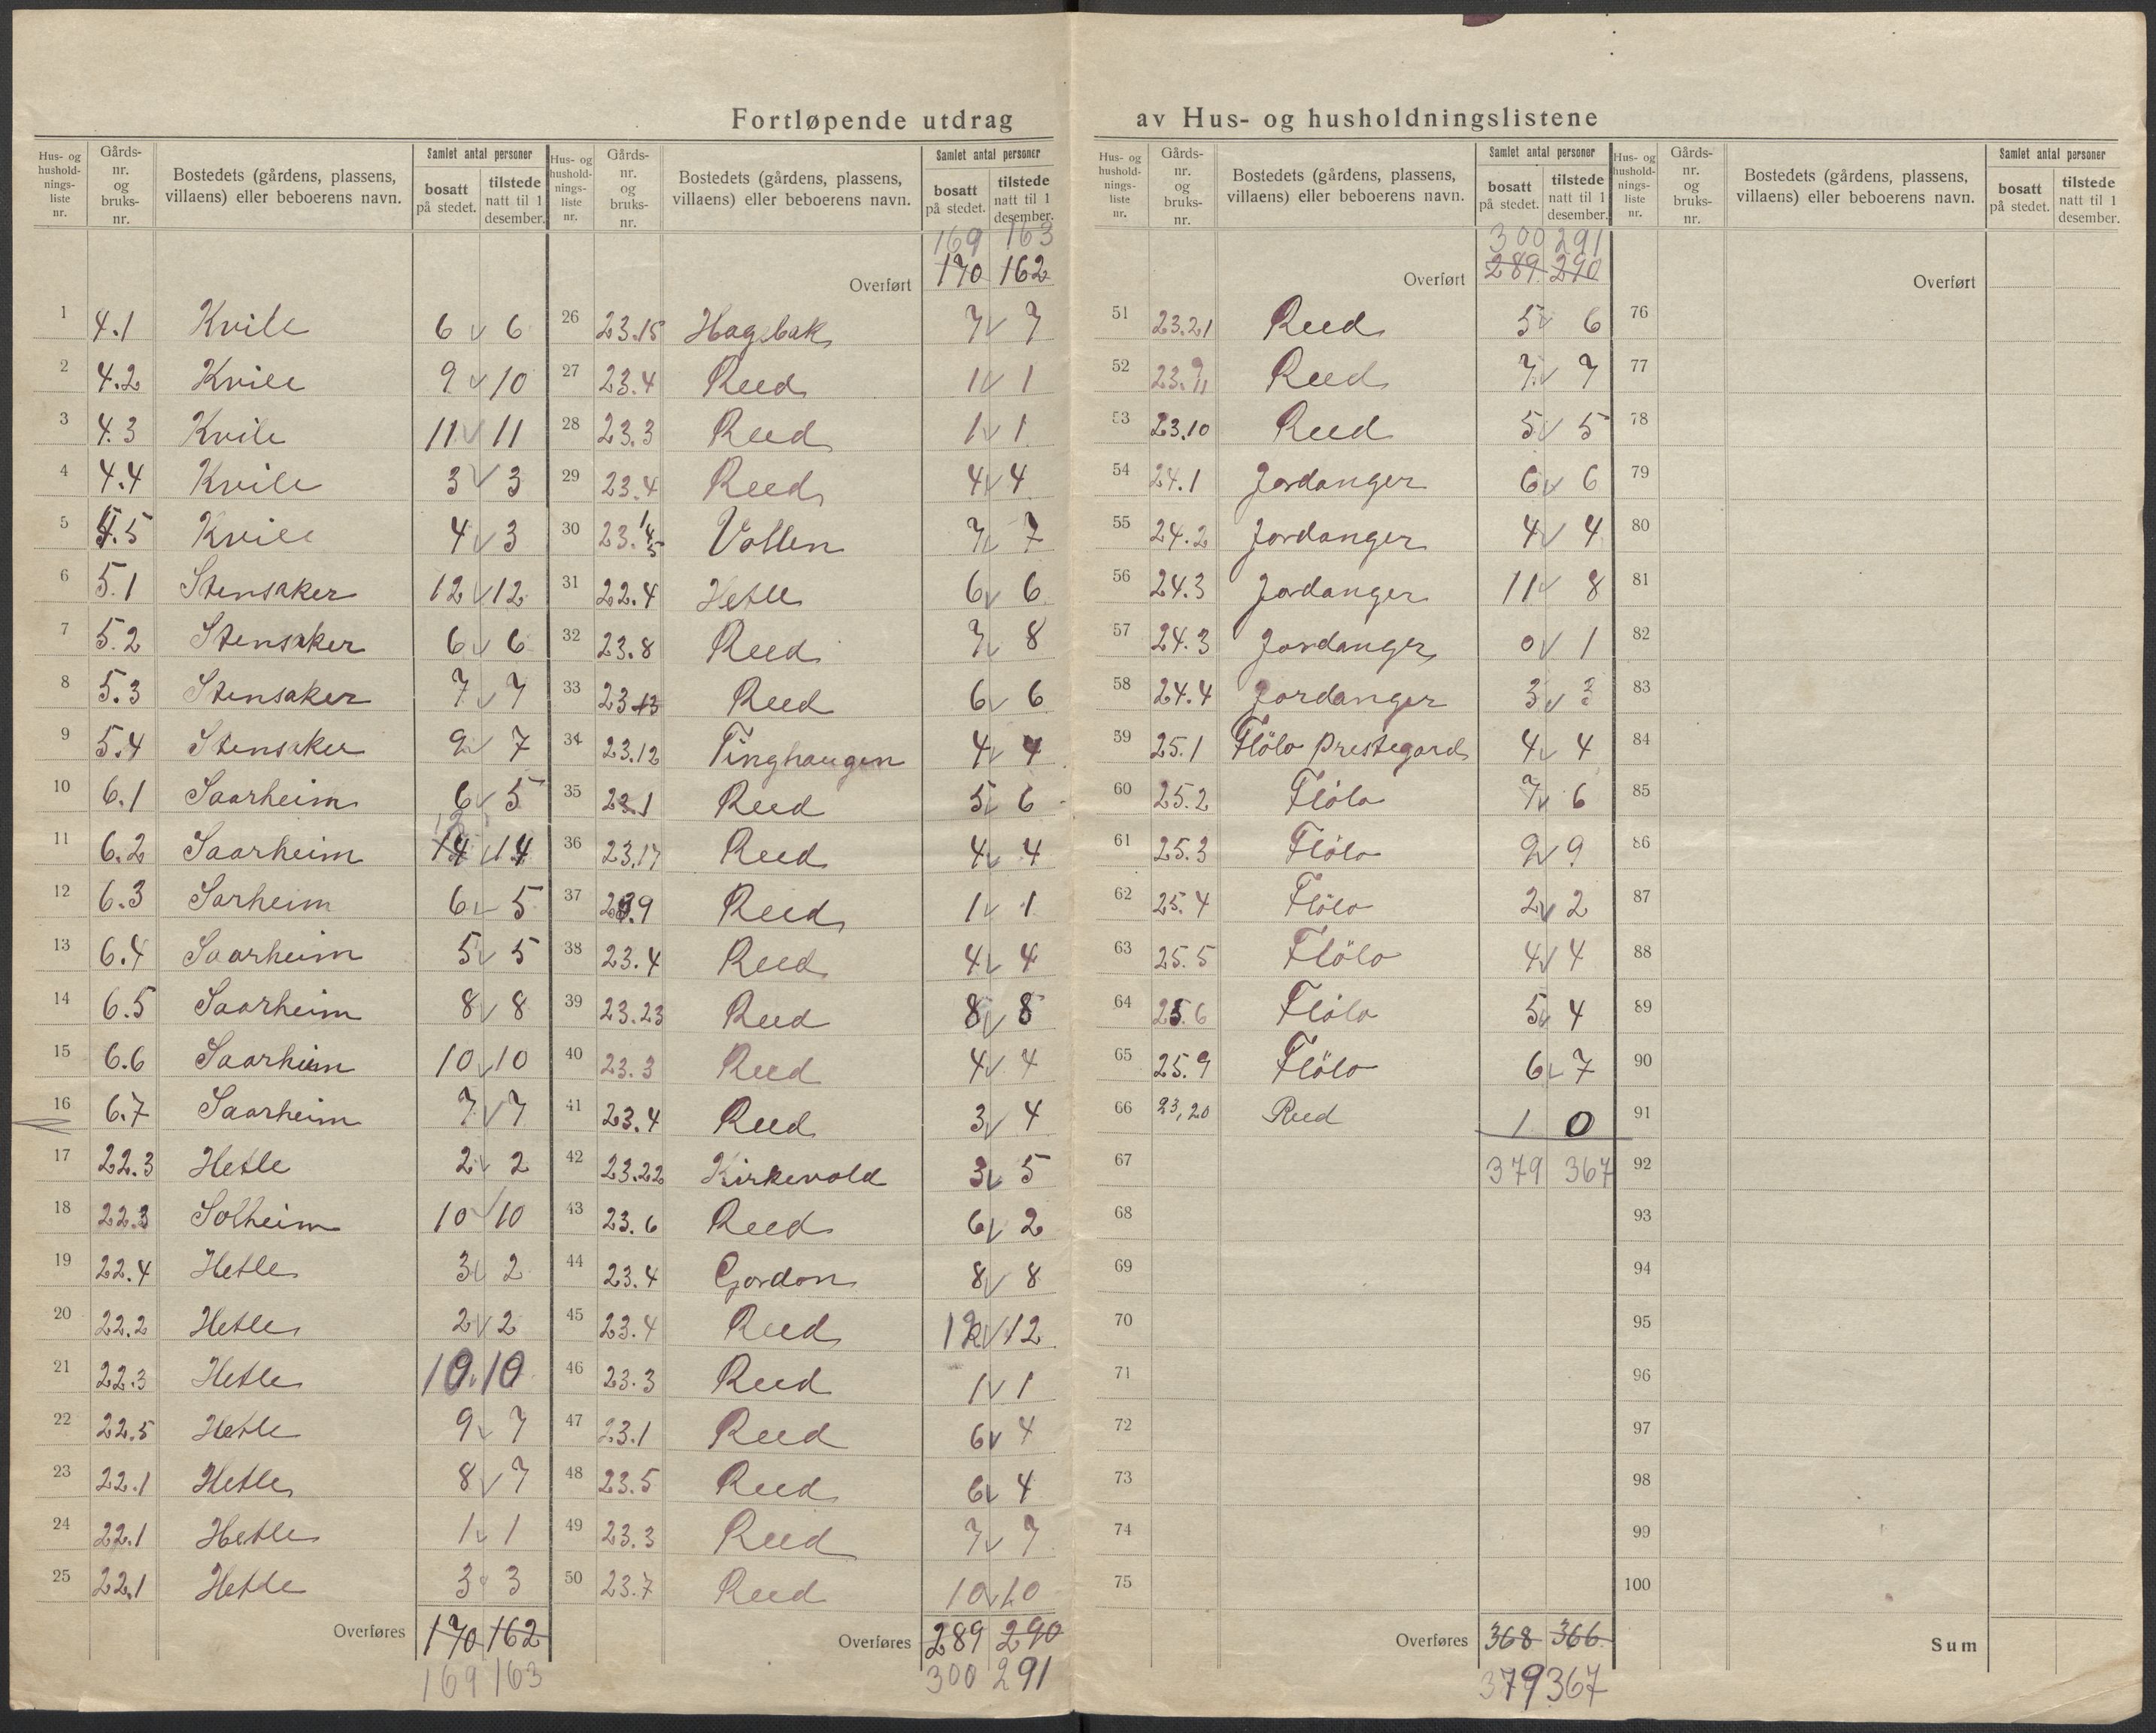 Fortløpende utdrag av Hus- og husholdningslistene
Hus- og husholdnings-liste nr. | Gårds-nr. og bruks-nr. | Bostedets (gårdens, plassens, villaens) eller beboerens navn. | Samlet antal personer | bosatt på stedet. | tilstede natt til 1 desember.
1 4.1 Kvile 6 6
2 4.2 Kvile 9 10
3 4.3 Kvile 11 11
4 4.4 Kvile 3 3
5 4.5 Kvile 4 3
6 5.1 Stensaker 12 12
7 5.2 Stensaker 6 6
8 5.3 Stensaker 7 7
9 5.4 Stensaker 9 7
10 6.1 Saarheim 6 5
11 6.2 Saarheim 14 14
12 6.3 Sarheim 6 5
13 6.4 Saarheim 5 5
14 6.5 Saarheim 8 8
15 6.6 Saarheim 10 10
16 6.7 Saarheim 7 7
17 22.3 Hetle 2 2
18 22.3 Solheim 10 10
19 22.4 Hetle 3 2
20 22.2 Hetle 2 2
21 22.3 Hetle 10 10
22 22.5 Hetle 9 7
23 22.1 Hetle 8 7
24 22.1 Hetle 1 1
25 22.1 Hetle 3 3
Overføres 170 162
169 163
Hus- og husholdnings-liste nr. | Gårds-nr. og bruks-nr. | Bostedets (gårdens, plassens, villaens) eller beboerens navn. | Samlet antal personer | bosatt på stedet. | tilstede natt til 1 desember.
169 163
Overført 170 162
26 23.15 Hagebak 7 7
27 23.4 Reed 1 1
28 23.3 Reed 1 1
29 23.4 Reed 4 4
30 23. 1 4 5 Vollen 7 7
31 22.4 Hetle 6 6
32 23.8 Reed 7 8
33 23.13 Reed 6 6
34 23.12 Tinghaugen 4 4
35 23.1 Reed 5 6
36 23.17 Reed 4 4
37 23.9 Reed 1 1
38 23.4 Reed 4 4
39 23.23 Reed 8 8
40 23.3 Reed 4 4
41 23.4 Reed 3 4
42 23.22 Kirkevold 3 5
43 23.6 Reed 6 2
44 23.4 Gordon 8 8
45 23.4 Reed 12 12
46 23.3 Reed 1 1
47 23.1 Reed 6 4
48 23.5 Reed 6 4
49 23.3 Reed 7 7
50 23.7 Reed 10 10
Overføres 289 290
300 291
Hus- og husholdnings-liste nr. | Gårds-nr. og bruks-nr. | Bostedets (gårdens, plassens, villaens) eller beboerens navn. | Samlet antal personer | bosatt på stedet. | tilstede natt til 1 desember.
300 291
Overført 289 290
51 23.21 Reed 5 6
52 Reed 7 7
53 23.10 Reed 5 5
54 24.1 Jordanger 6 6
55 24.2 Jordanger 4 4
56 24.3 Jordanger 11 8
57 24.3 Jordanger 0 1
58 24.4 Jordanger 3 3
59 25.1 Flölo prestegard 4 4
60 25.2 Flölo 7 6
61 25.3 Flölo 9 9
62 25.4 Flölo 2 2
63 25.5 Flölo 4 4
64 25.6 Flölo 5 4
65 25.9 Flölo 6 7
66 23,20 Reed 1 0
67 379 367
68
69
70
71
72
73
74
75
Overføres 368 366
379 367
Hus- og husholdnings-liste nr. | Gårds-nr. og bruks-nr. | Bostedets (gårdens, plassens, villaens) eller beboerens navn. | Samlet antal personer | bosatt på stedet. | tilstede natt til 1 desember.
Overført
76
77
78
79
80
81
82
83
84
85
86
87
88
89
90
91
92
93
94
95
96
97
98
99
100
Sum